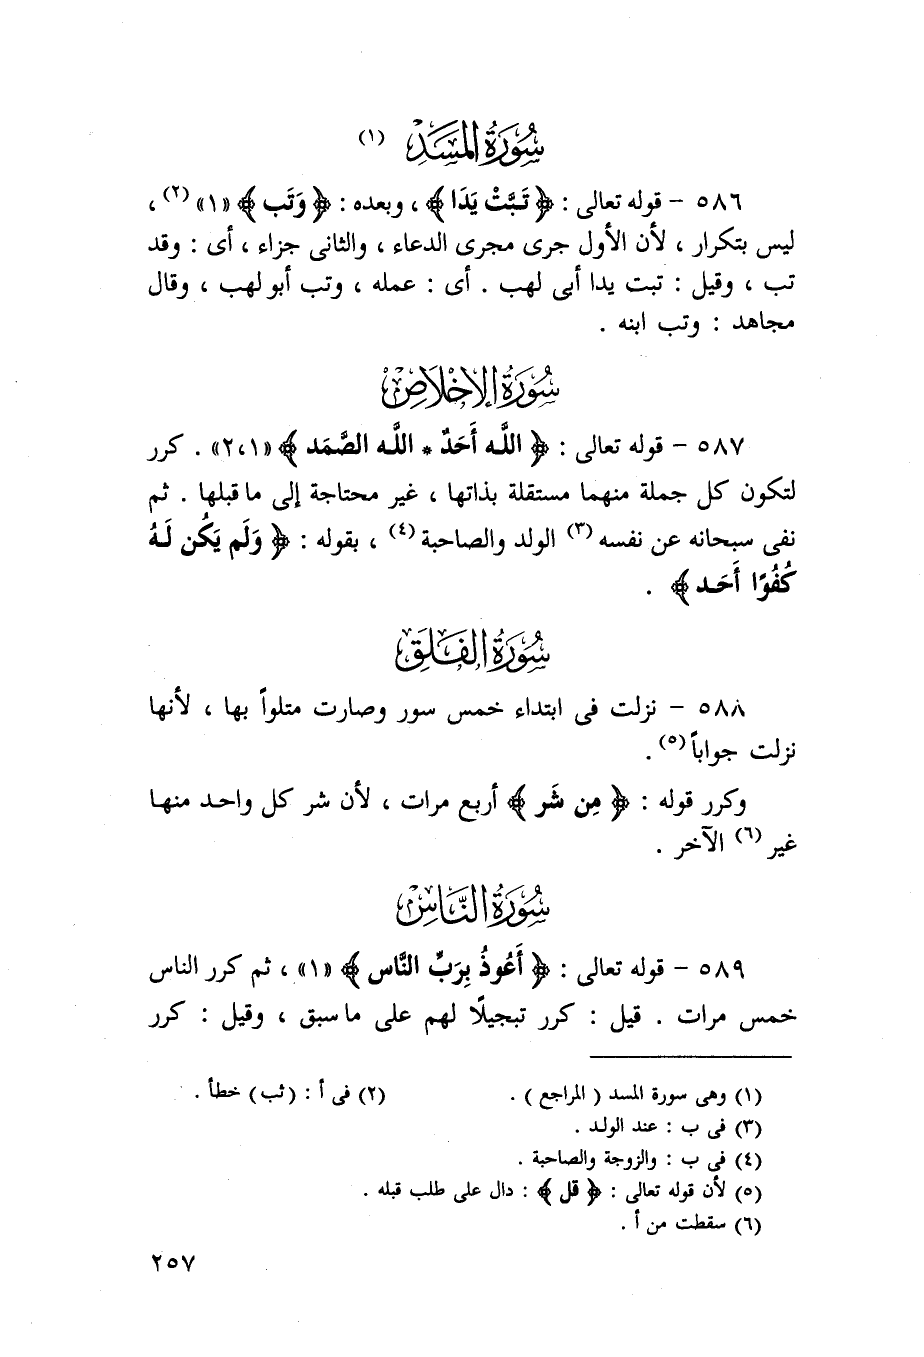 سُورَةُ المَسَدِ (١)
٥٨٦ – قوله تعالى : ﴿ تَبَّتْ يَدَا ﴾ ، وبعده : ﴿ وَتَب ﴾ «١» (٢) ،
ليس بتكرار ، لأن الأول جرى مجرى الدعاء ، والثانى جزاء ، أى : وقد
تب ، وقيل : تبت يدا أبى لهب . أى : عمله ، وتب أبو لهب ، وقال
مجاهد : وتب ابنه .
سُورَةُ الإِخْلَاصِ
٥٨٧ – قوله تعالى : ﴿ اللَّه أَحَدٌ * اللَّه الصَّمَد ﴾ «١،٢» . كرر
لتكون كل جملة منهما مستقلة بذاتها ، غير محتاجة إلى ما قبلها . ثم
نفى سبحانه عن نفسه (٣) الولد والصاحبة (٤) ، بقوله : ﴿ وَلَم يَكُن لَهُ
كُفُوًا أَحَد ﴾ .
سُورَةُ الفَلَقِ
٥٨٨ – نزلت فى ابتداء خمس سور وصارت متلواً بها ، لأنها
نزلت جواباً (٥) .
وكرر قوله : ﴿ مِن شَر ﴾ أربع مرات ، لأن شر كل واحد منها
غير (٦) الآخر .
سُورَةُ النَّاسِ
٥٨٩ – قوله تعالى : ﴿ أَعُوذُ بِرَبِّ النَّاس ﴾ «١» ، ثم كرر الناس
خمس مرات . قيل : كرر تبجيلًا لهم على ما سبق ، وقيل : كرر
(١) وهى سورة المسد ( المراجع ) . (٢) فى أ : (ثب) خطأ .
(٣) فى ب : عند الولد .
(٤) فى ب : والزوجة والصاحبة .
(٥) لأن قوله تعالى : ﴿ قل ﴾ : دال على طلب قبله .
(٦) سقطت من أ .
٢٥٧